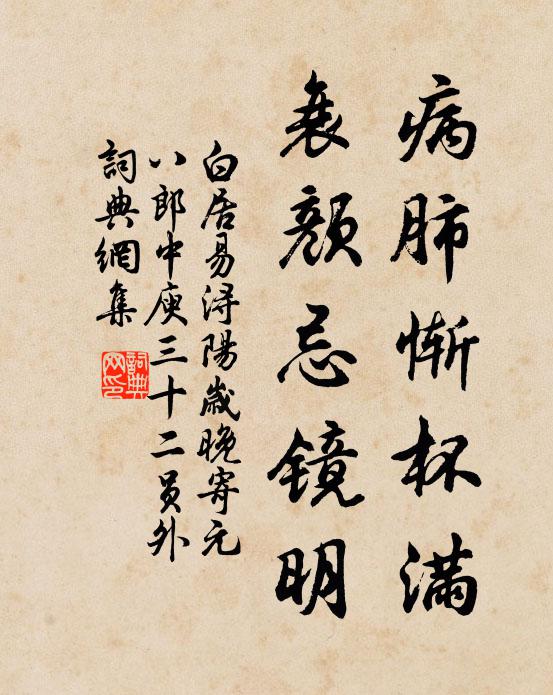 病肺惭杯满
衰颜忌镜明
白居易浔陽歲晚寄元
八郎中庾三十二员外
詞典網集
詞典网印